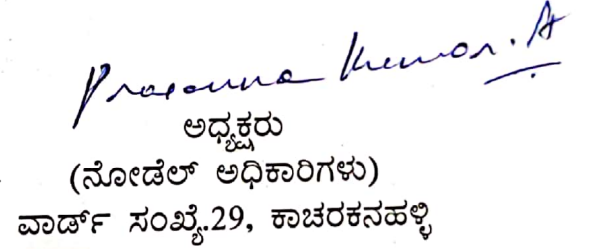 Prasanna Kumar. A
ಅಧ್ಯಕ್ಷರು
(ನೋಡೆಲ್ ಅಧಿಕಾರಿಗಳು)
ವಾರ್ಡ್ ಸಂಖ್ಯೆ.29, ಕಾಚರಕನಹಳ್ಳಿ